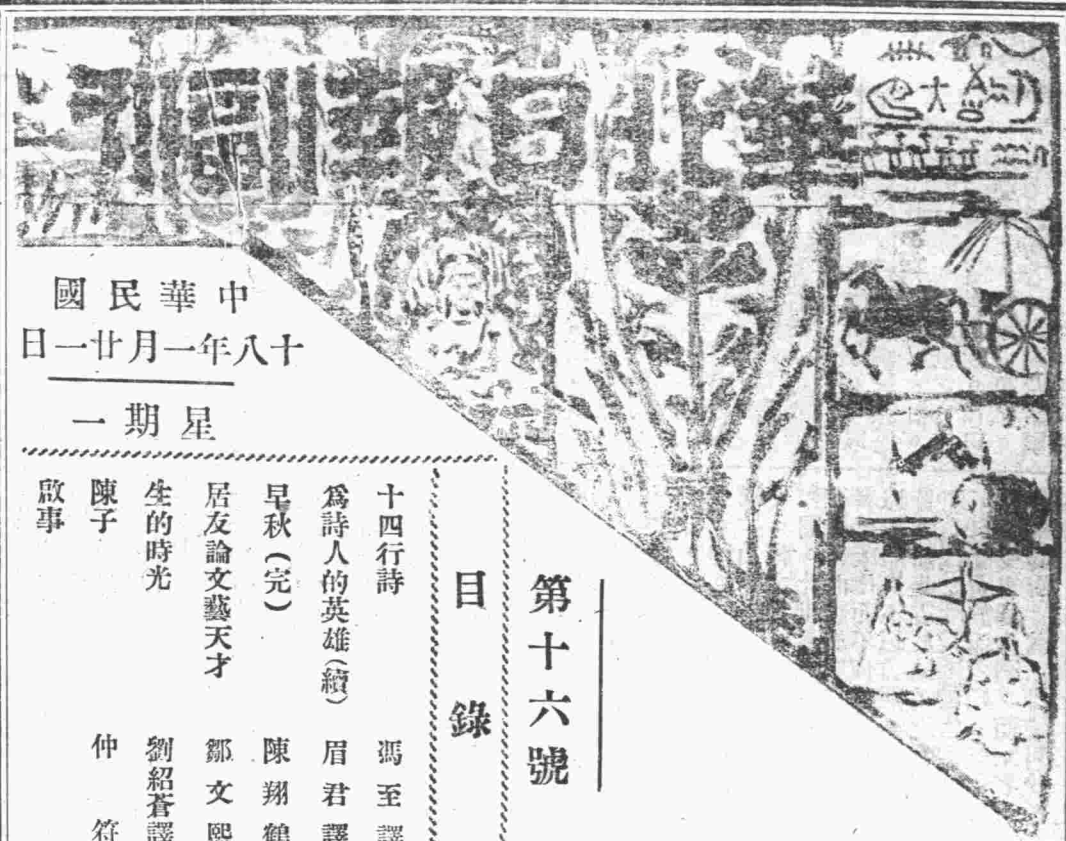 華北日報副刊
中華民國
十八年一月廿一日
星期一
第十六號
目錄
十四行詩 馮至譯
爲詩人的英雄(續) 眉君譯
早秋(完) 陳翔鶴
居友論文藝天才 鄒文熙
生的時光 劉紹蒼譯
陳子 仲符
啟事